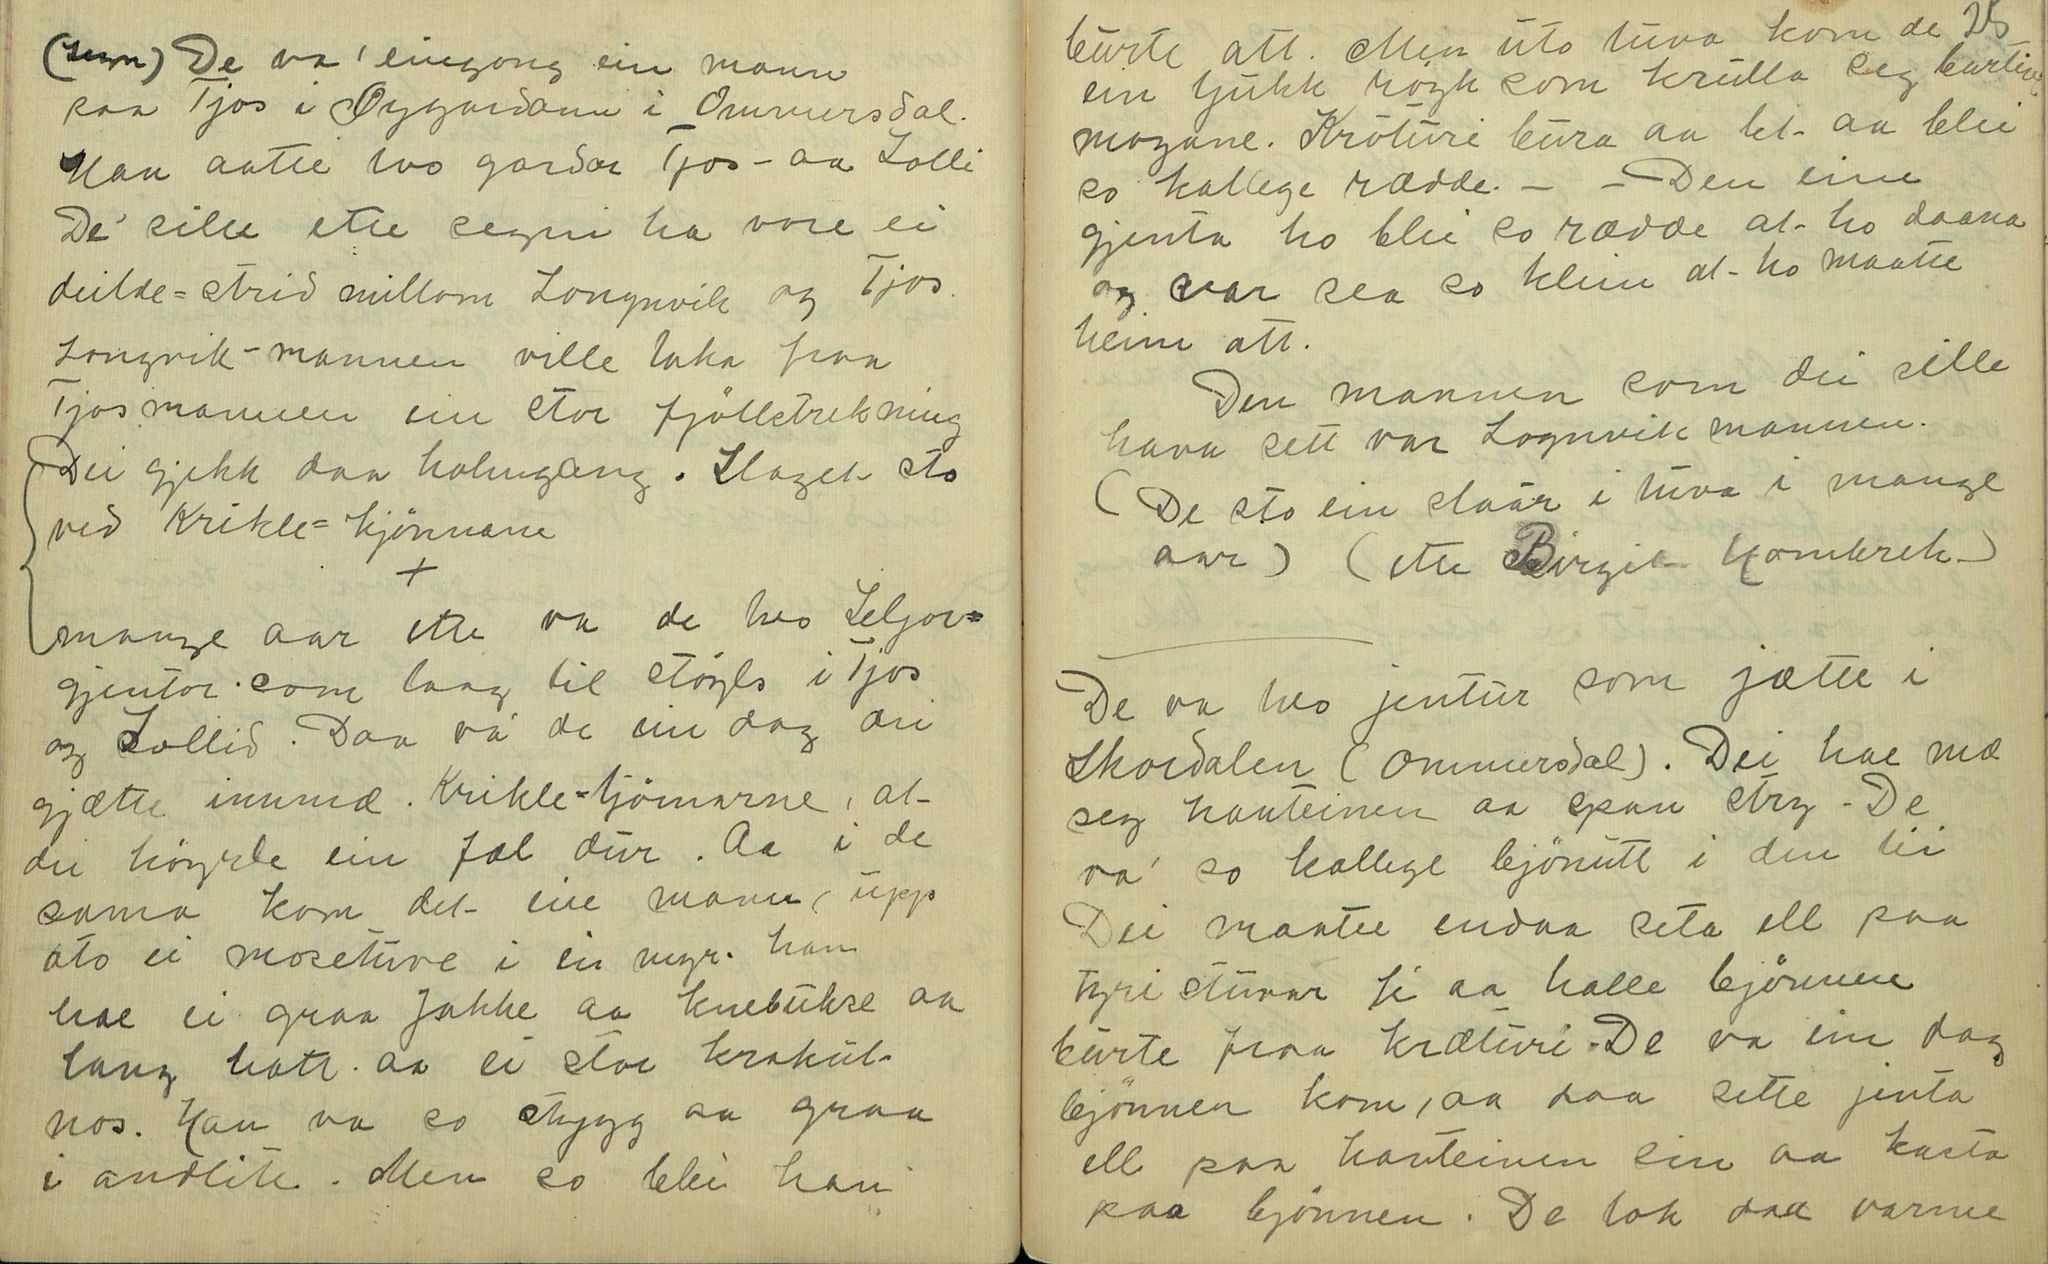 (segn) De va' eingong ein mann
paa Tjos i Øygardane i Ommersdal.
Han aatte two gardar Tjos - aa Lolli
De' sille ette segni ha vore ei
deilde=strid millom Longnvik og Tjos.
Longvik-mannen ville taka fraa
Tjosmannen ein stor fjöllstrekning
Dei gjekk daa holmgang. Slaget sto
ved Krikle=tjönnane
+
mange aar ette va de two Seljor=
gjentor som laag til stöyls i Tjos
og Lollid. Daa va' de ein dag dei
gjætte innmæ Krikle=tjönnarne, at
dei höyrde ein fæl dur. Aa i de
sama kom det eie mann, upp
oto ei mosetuve i ei myr. han
hae ei graa Jakke aa knebukse aa
lang hatt aa ei stor krokut
nos. Han va so stygg aa graa
i andlite. Men so blei han
25
burte att. Men uto tuva kom de
ein tjukk röyk som krulla seg burtive
mogane. Kröturi bura aa let aa blei
so kallege rædde. - - Den eine
gjenta ho blei so rædde at ho daana
og var sea so klein at ho maatte
heim att.
Den mannen som dei sille
hava sett var Lognvik mannen.
(De sto ein staur i tuva i mange
aar) (ette Birgit Kombrek)
De va two jentur som jætte i
Skordalen (Ommersdal). Dei hae mæ
seg hanteinen aa span stry - De
va' so kallege bjönutt i den tii
Dei maatte endaa seta ell paa
tyri stuvar fi aa halle bjönnen
burte fraa kræturi. De va ein dag
bjönnen kom, aa daa sette jenta
ell paa hanteinen sin aa kasta
paa bjönnen. De tok daa varme